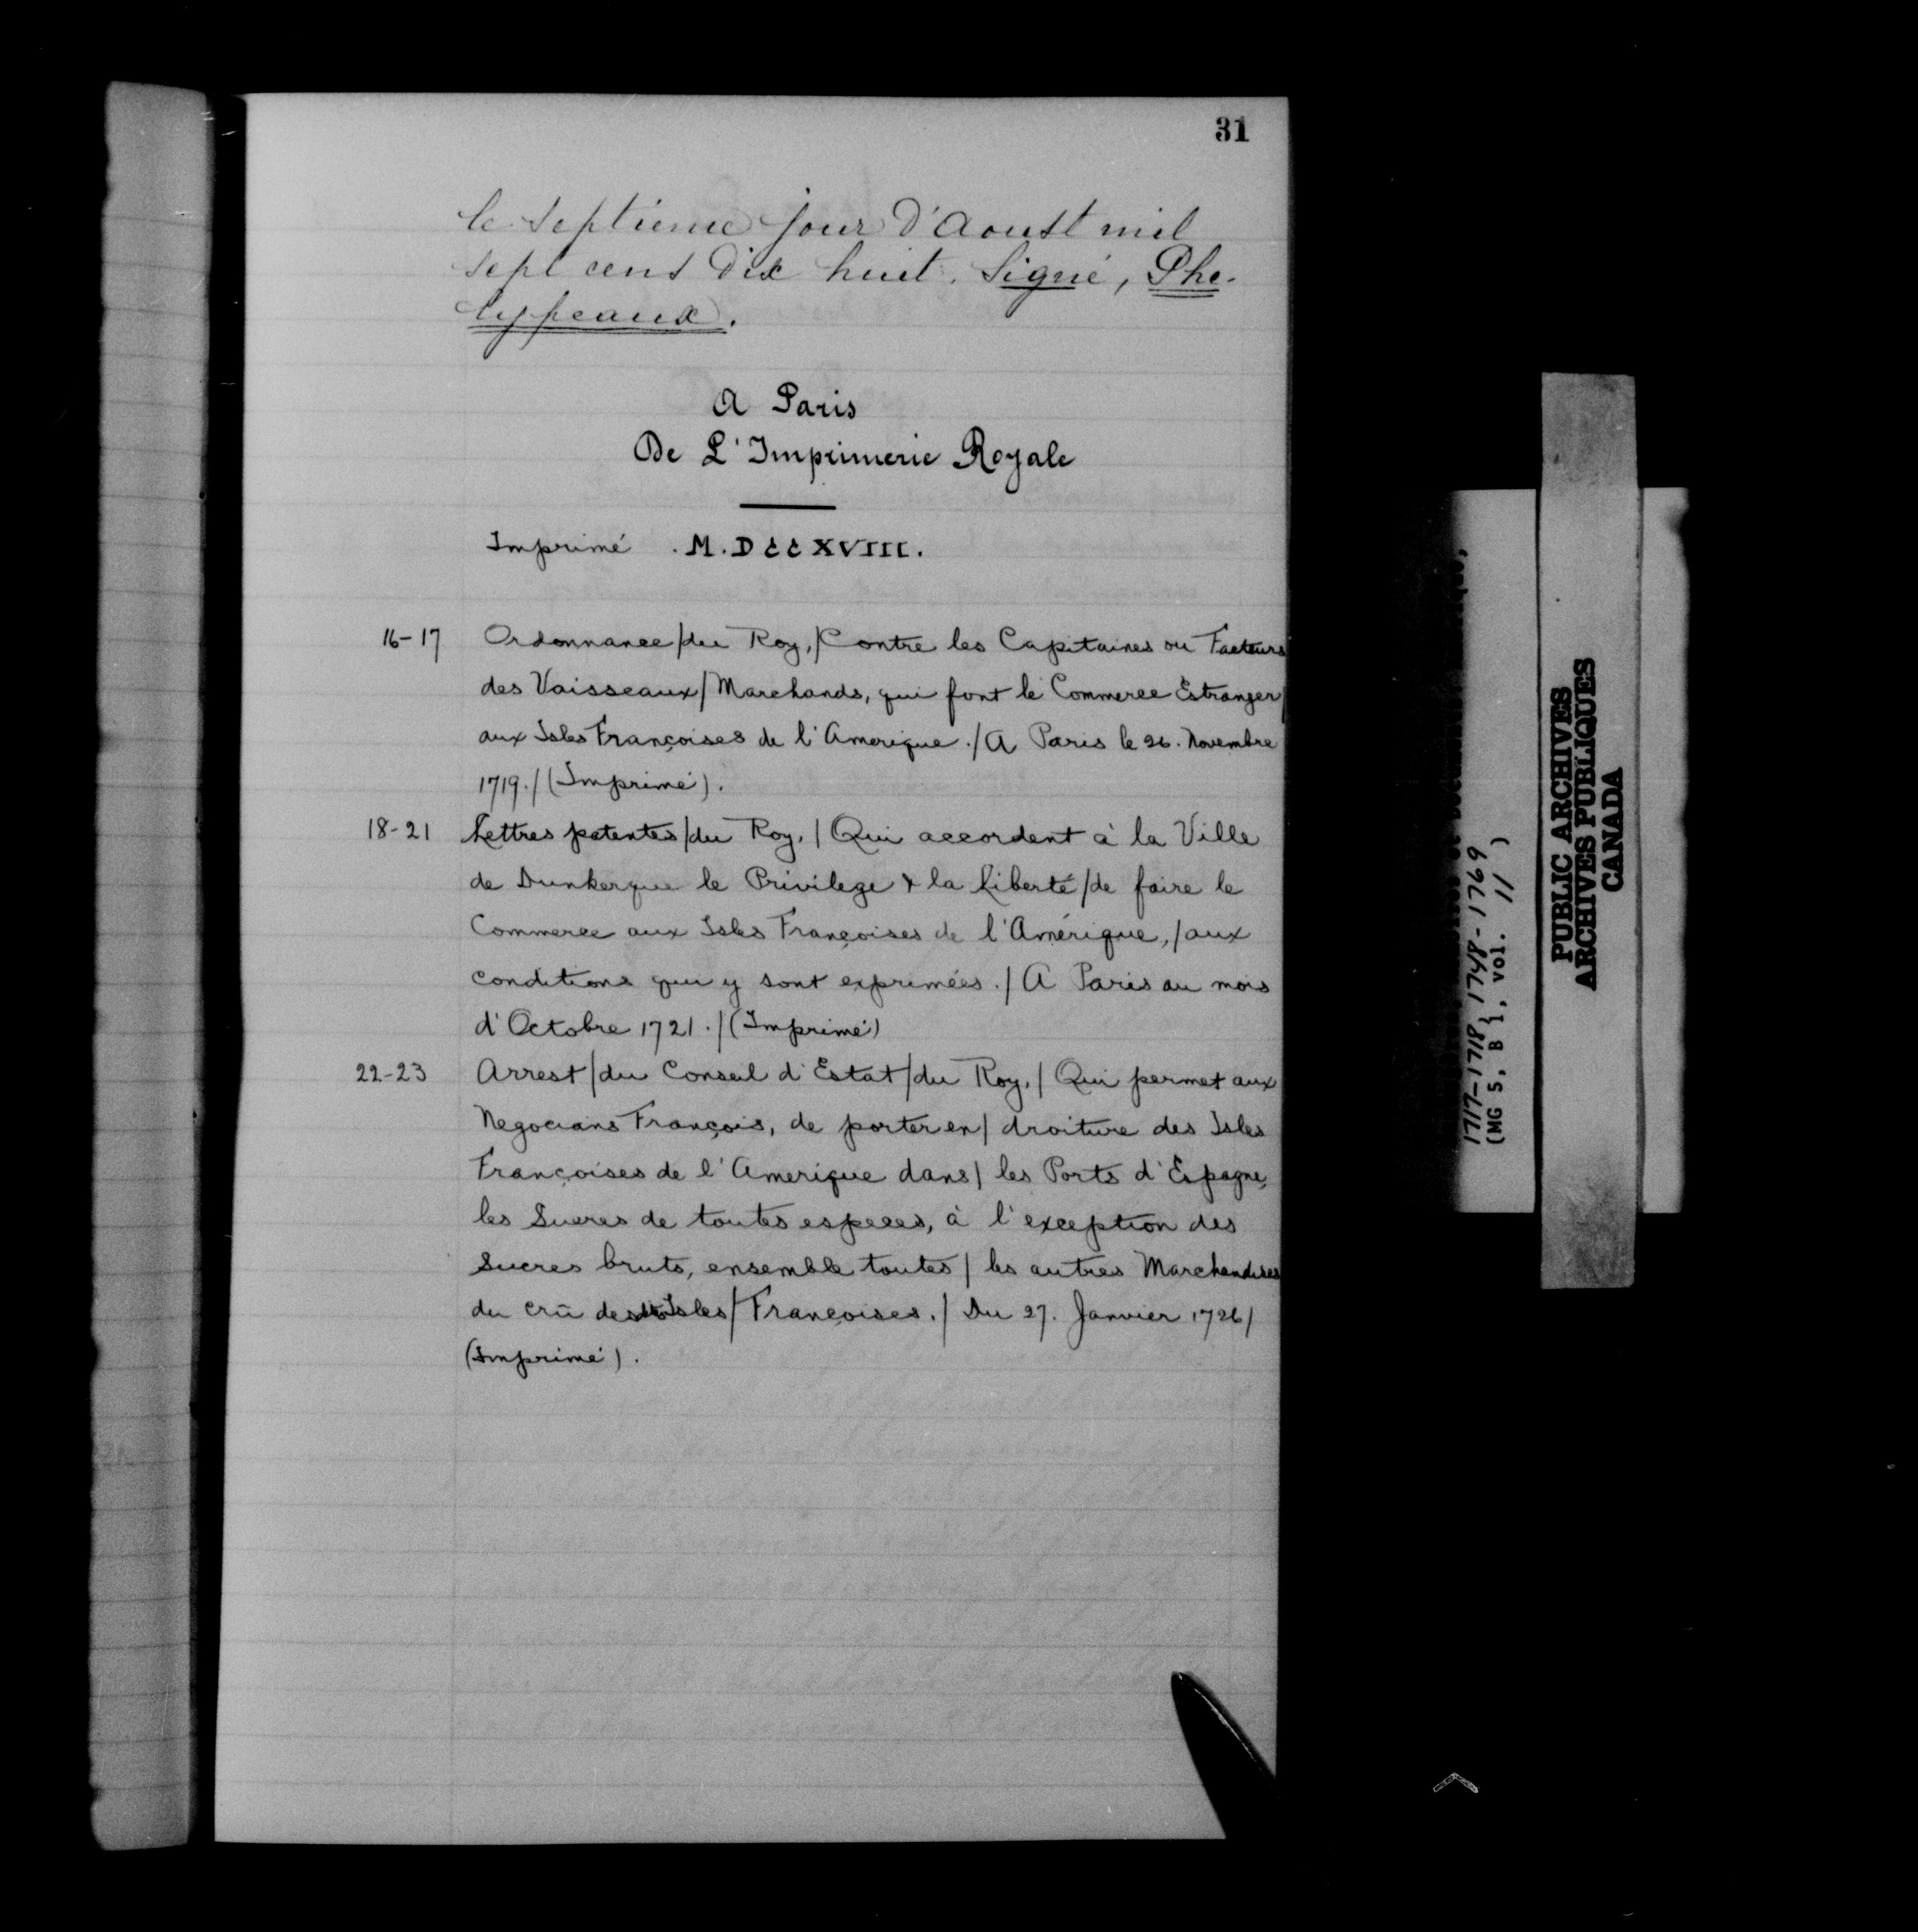 31
le septieme jour d'Aoust mil
sept cens dix huit. Signé, Phe-
lypeaux.
A Paris
De L'Imprimerie Royale
Imprimé . M. DCCXVIII.
16-17 Ordonnance/du Roy,/Contre les Capitaines ou Facteurs
des Vaisseaux/Marchands, qui font le Commerce Estranger/
aux Isles Françoises de l'Amerique./A Paris le 26. Novembre
1719./(Imprimé).
18-21 Lettres patentes/du Roy,/Qui accordent à la Ville
de Dunkerque le Privilege & la Liberté/de faire le
Commerce aux Isles Françoises de l'Amérique,/aux
conditions qui y sont exprimées./A Paris au mois
d'Octobre 1721./(Imprimé)
22-23 Arrest/du Conseil d'Estat/du Roy,/Qui permet aux
Negocians François, de porter en/droiture des Isles
Françoises de l'Amerique dans/les Ports d'Espagne,
les Sucres de toutes especes, à l'exception des
Sucres bruts, ensemble toutes/les autres Marchandises
du crû des Isles/Françoises./Du 27. Janvier 1726/
(Imprimé).
1717-1718, 1748-1769
(MG 5, B 1, vol. 11 )
PUBLIC ARCHIVES
ARCHIVES PUBLIQUES
CANADA